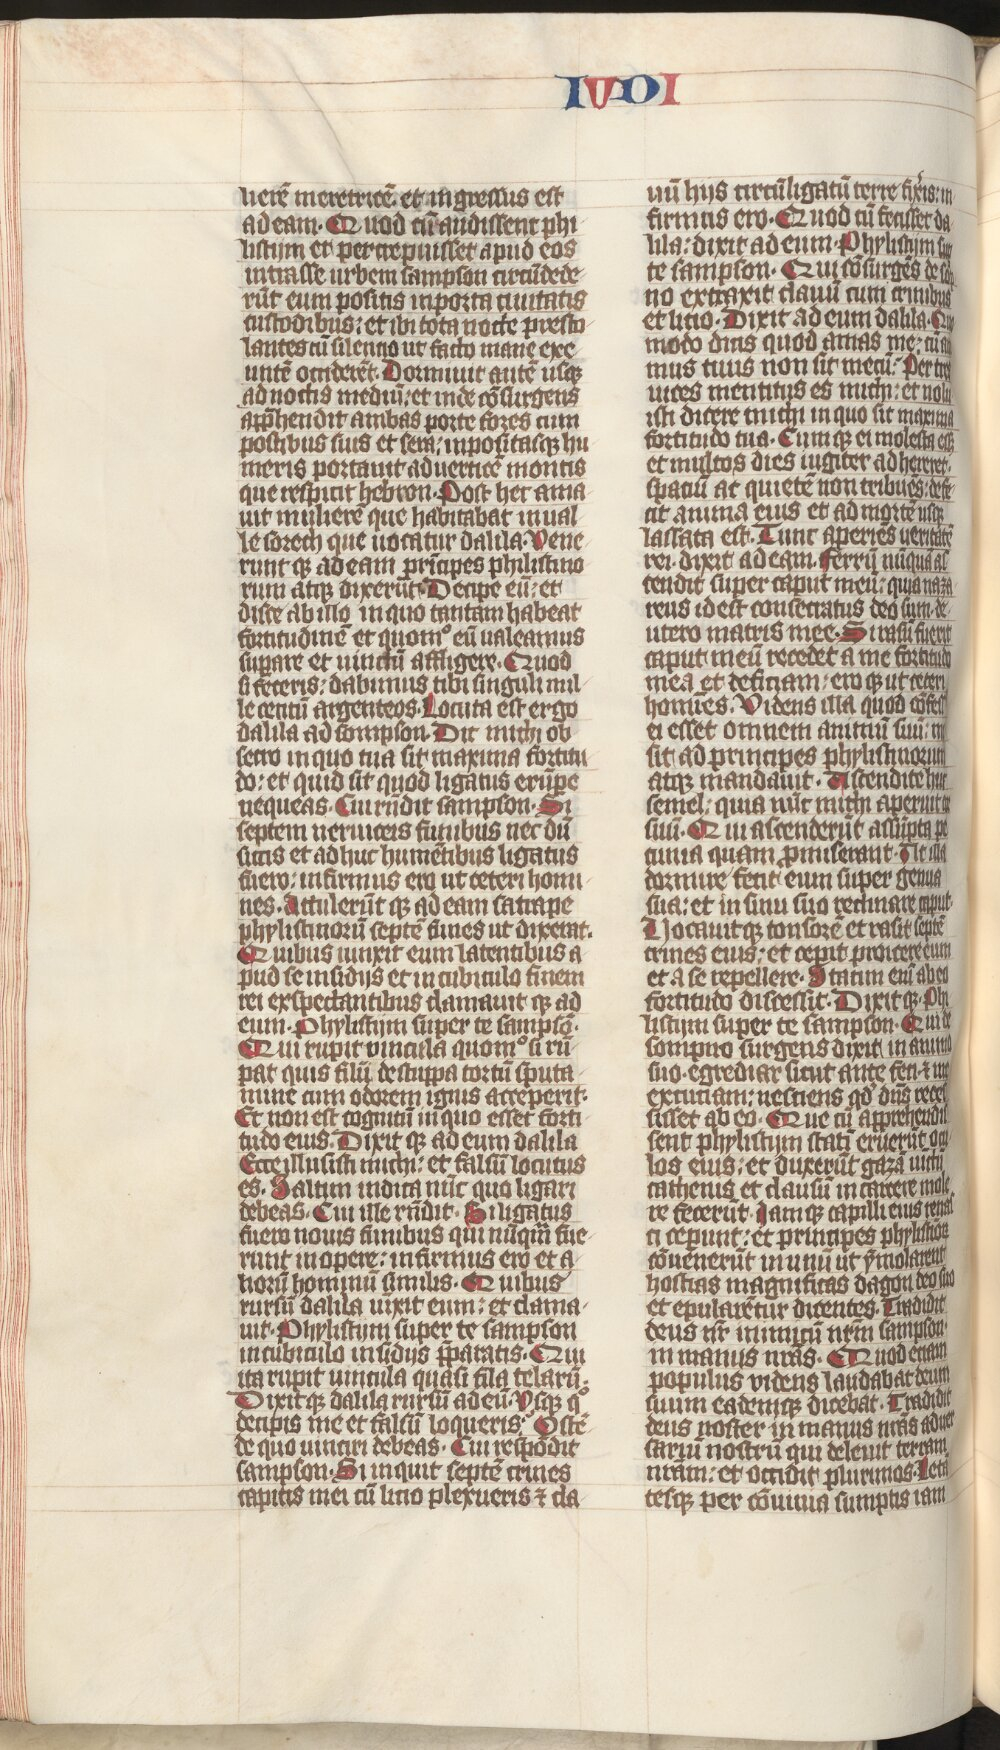 IUDI
lierē meretricē. et ingressus est
ad eam. Quod cū audissent phi
listijm et percrepuisset apud eos
intrasse urbem sampson circūdede
rūt eum positis in porta ciuitatis
custodibus: et ibi tota nocte presto
lantes cū silencio ut facto mane exe
untē occiderēt. Dormiuit autē usqꝫ
ad noctis mediū: et inde cōsurgens
app̄hendit ambas porte fores cum
postibus suis et sera: inpositasqꝫ hu
meris portauit ad verticē montis
que respicit hebron. Post hec ama
uit mulierē que habitabat in ual
le sorech que uocatur dalila. Vene
runt qꝫ ad eam prīcipes philistino
rum atqꝫ dixerūt. Decipe eū: et
disce ab illo in quo tantam habeat
fortitudinē et quomᵒ eū ualeamus
suꝑare et uinctū affligere. Quod
si feceris: dabimus tibi singuli mil
le centū argenteos. Locuta est ergo
dalila ad sompson. Dic michi ob
secro in quo tua sit maxima fortitu
do: et quid sit quod ligatus erūpe
nequeas. Cui rn̄dit sampson. Si
septem neruiceis funibus nec dū
siccis et adhuc humētibus ligatus
fuero: infirmus ero ut ceteri homi
nes. Attulerūt qꝫ ad eam satrape
phylistinorū septē funes ut dixerat.
Quibus uinxit eum latentibus a
pud se insidijs et in cubiculo finem
rei exspectantibus clamauit qꝫ ad
eum. Phylistijm super te sampsō.
Qui rupit vincula quomᵒ si rū
pat quis filū de stuppa tortū sputa
mine cum odorem ignis acceperit.
Et non est cognitū in quo esset forti
tudo eius. Dixit qꝫ ad eum dalila
Ecce illusisti michi: et falsū locutus
es. Saltim indica nūc quo ligari
debeas. Cui ille rn̄dit. Si ligatus
fuero nouis funibus qui nūqūa fue
runt in opere: infirmus ero et a
liorū hominū similis. Quibus
rursū dalila uixit eum: et clama
uit. Phylistijm super te sampson
in cubiculo insidijs p̄paratis. Qui
ita rupit uincula quasi fila telarū.
Dixitqꝫ dalila rursū ad eū. Vsqꝫ qᵒ
decipis me et falsū loqueris. Ostē
de quo uinciri debeas. Cui respōdit
sampson. Si inquit septē crines
capitis mei cū licio plexueris ⁊ cla
uū hijs circūligatū terre fixeris: in
firmus ero. Quod cū fecisset da
lila: dixit ad eum. Phylistijm sup
te sampson. Qui cōsurgēs de sōp
no extraxit clauū cum crinibus
et licio. Dixit ad eum dalila. Quo
modo dicis quod amas me: cū ani
mus tuus non sit mecū. Per tres
uices mentitus es michi: et nolu
isti dicere michi in quo sit maxima
fortitudo tua. Cum qꝫ ei molesta ess
et multos dies iugiter adhereret.
spaciū ac quietē non tribuēs: defe
cit anima eius et ad mortē usqꝫ
lassata est. Tunc aperiēs ueritatē
rei. dixit ad eam. Ferrū nūqua as
cendit super caput meū: quia naza
reus id est consecratus deo sum. de
utero matris mee. Si rasū fuerit
caput meū recedet a me fortitudo
mea et deficiam: ero qꝫ ut ceteri
homīes. Videns illa quod cōfess
ei esset omnem animū suū: mi
sit ad principes phylistinorum
atqꝫ mandauit. Ascendite huc
semel: quia nūc michi aperuit cor
suū. Qui ascenderūt assūpta pe
cunia quam ꝓmiserant. At illa
dormire fecit eum super genua
sua: et in sinu suo reclinare caput.
Uocauitqꝫ tonsorē et rasit septē
crines eius: et cepit proicere eum
et a se repellere. Statim enī ab eo
fortitudo discessit. Dixit qꝫ. Phi
listijm super te sampson. Qui de
sompno surgens dixit in animo
suo. egrediar sicut ante feci. ⁊ me
excutiam: nesciens qd' dn̄s reces
sisset ab eo. Que cū apprehendis
sent phylistijm statī eruerūt ocu
los eius: et duxerūt gazā uictū
cathenis et clausū in carcere mole
re fecerūt. Iam qꝫ capilli eius renas
ci ceperunt: et principes phylistiorum
cōuenerūt in unū ut ȳmolarent
hostias magnificas dagon deo suo
et epularētur dicentes. Tradidit
deus nr̄ inimicū nr̄m sampson.
in manus nrās. Quod etiam
populus videns laudabat deum
suum eademqꝫ dicebat. Tradidit
deus noster in manus nrās aduer
sariū nostrū qui deleuit terram
nrām: et occidit plurimos. Leta
tesqꝫ per cōuiuia sumptis iam